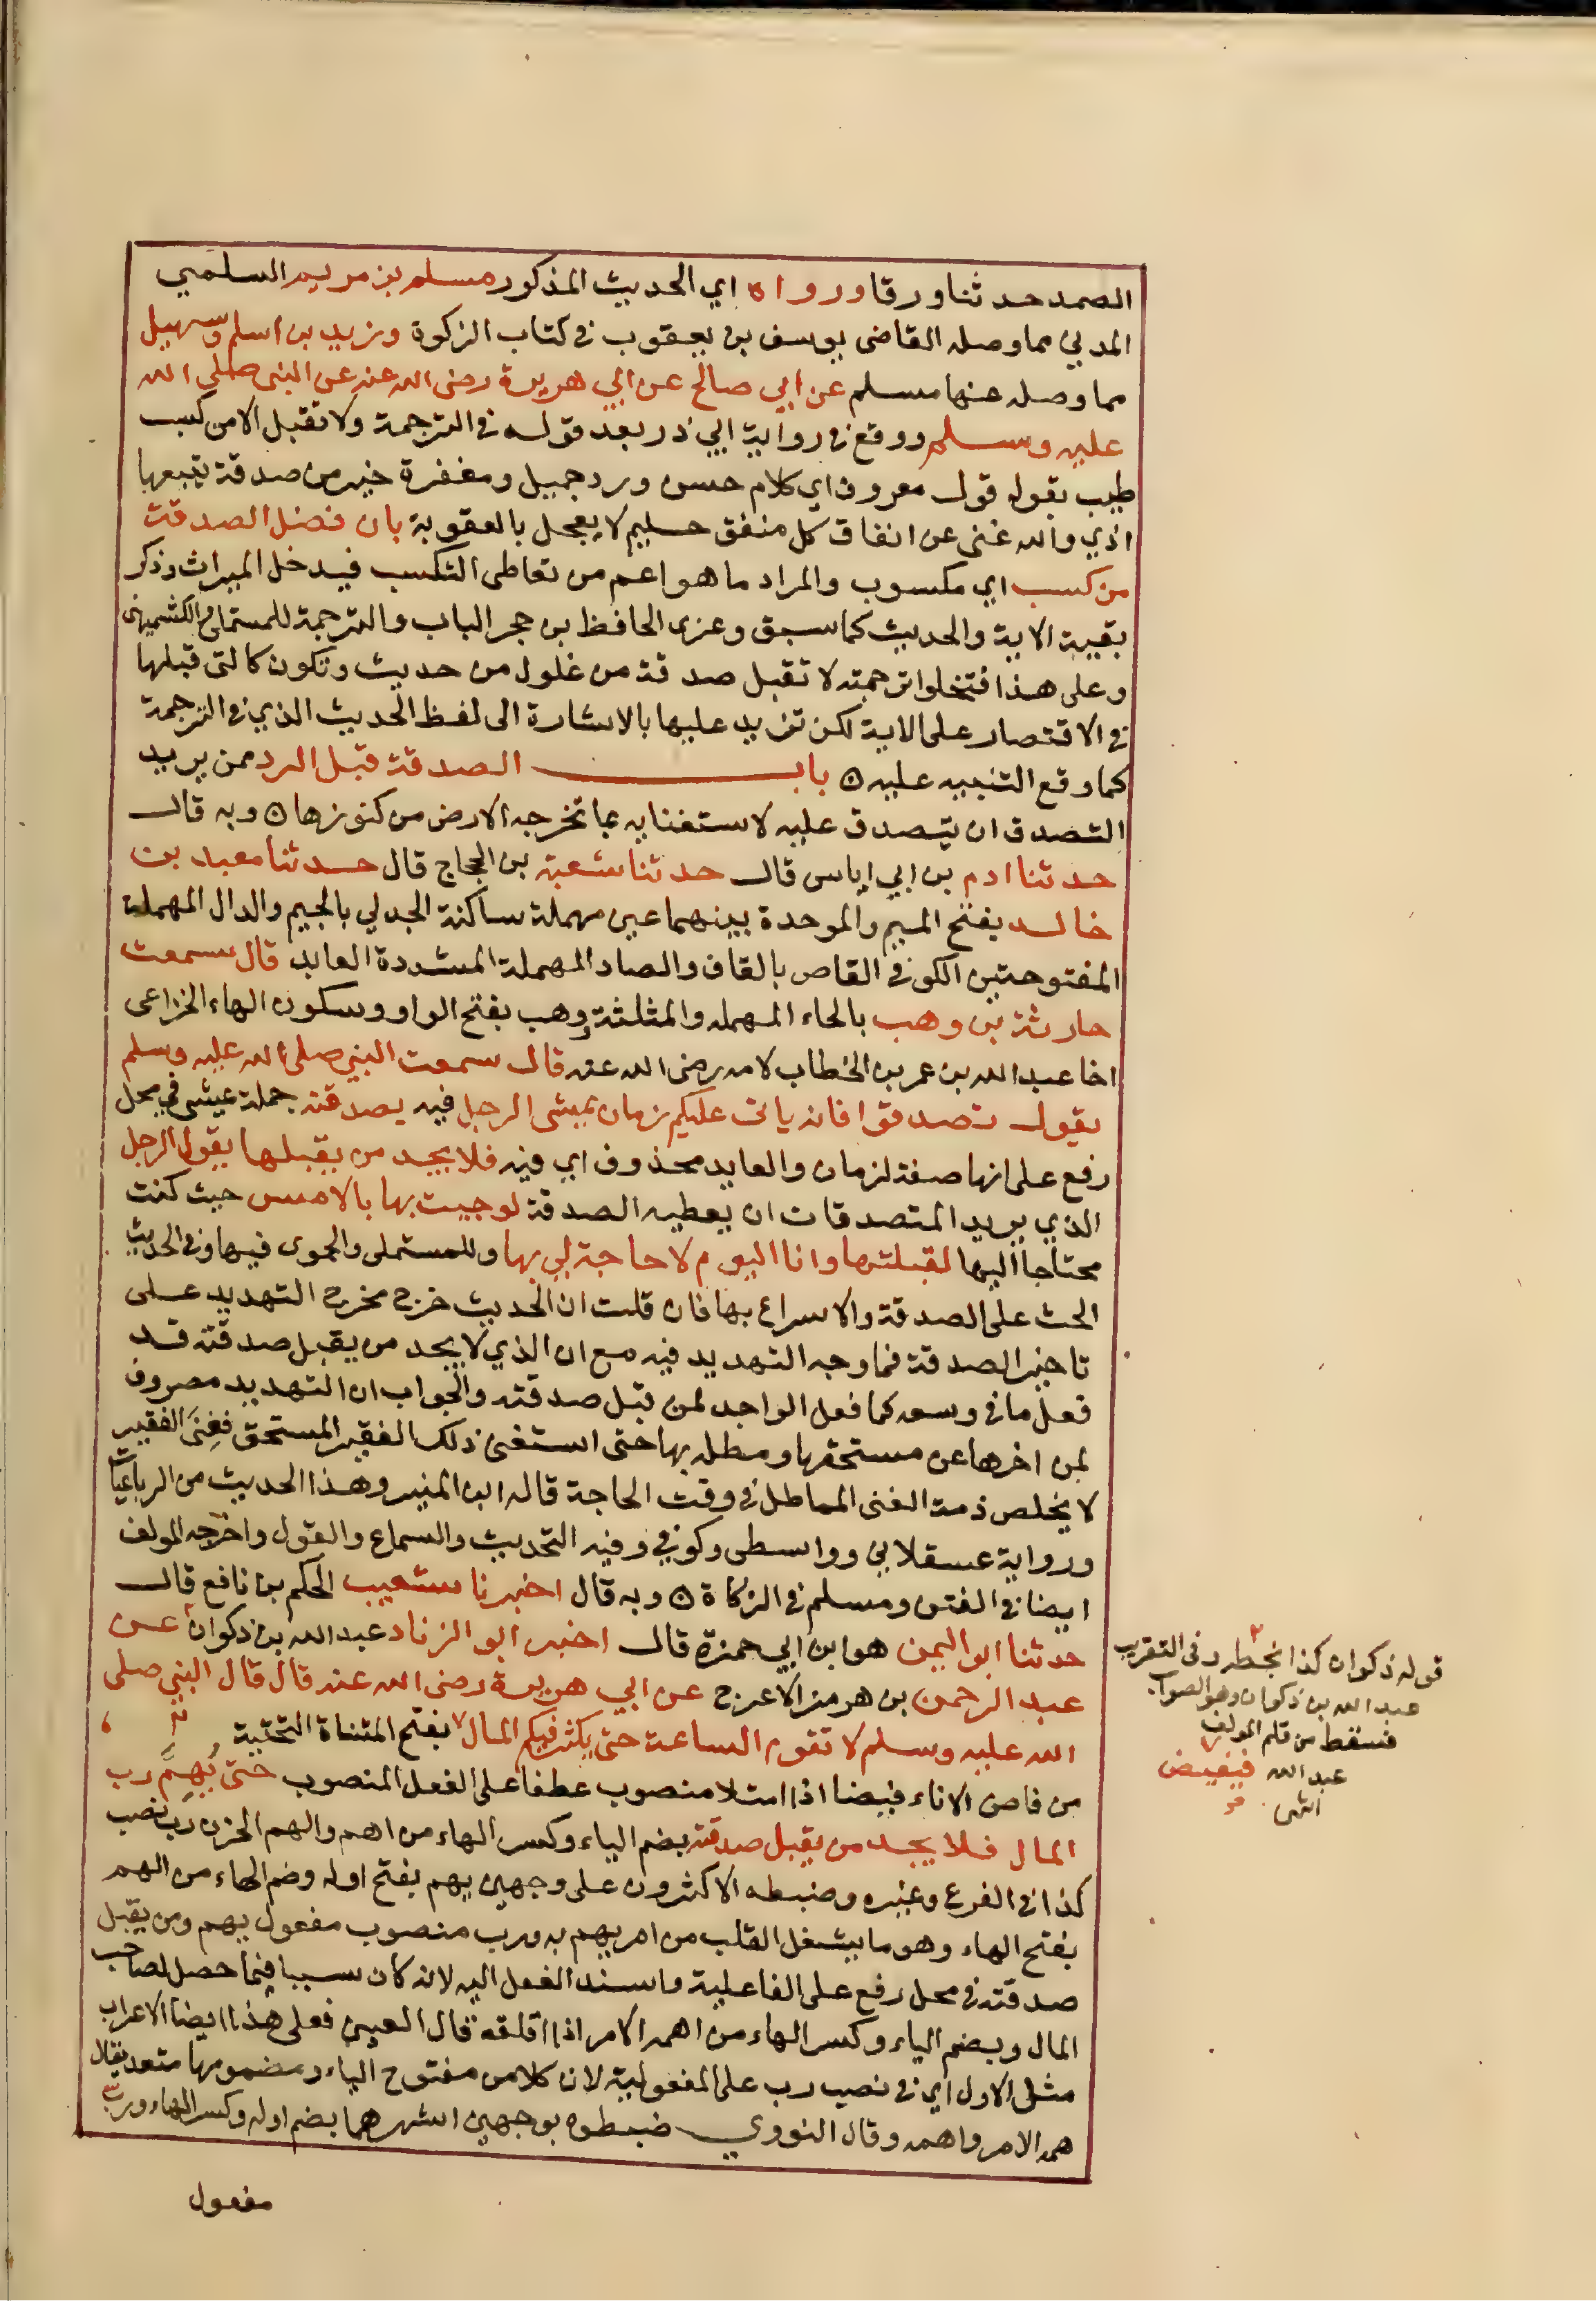 الصمد حدثنا ورقا ورواه اي الحديث المذكور مسلم بن مريم السلمي
المدني مما وصله القاضى يوسف بن يعقوب في كتاب الزكوة وزيد بن اسلم وسهيل
مما وصله عنها مسلم عن ابي صالح عن ابي هريرة رضى الله عنه عن النبى صلى الله
عليه وسلم ووقع في رواية ابي ذر بعد قوله في الترجمة ولا تقبل الا من كسب
طيب بقوله قول معروف اي كلام حسن ورد جميل ومغفرة خير من صدقة يتبعها
اذي والله غنى عن انفاق كل منفق حليم لا يعجل بالعقوبة بان فضل الصدقة
من كسب اي مكسوب والمراد ما هو اعم من تعاطى التكسب فيدخل الميراث وذكر
بقية الاية والحديث كما سبق وعزى الحافظ بن حجر الباب والترجمة للمستملى والكشميهنى
وعلى هذا فتخلوا ترجمته لا تقبل صدقة من غلول من حديث وتكون كالتى قبلها
في الاقتصار على الاية لكن تزيد عليها بالاشارة الى لفظ الحديث الذي في الترجمة
كما وقع التنبيه عليه ه باب الصدقة قبل الرد ممن يريد
التصدق ان يتصدق عليه لاستغنايه بما تخرجه الارض من كنوزها ه وبه قال
حدثنا ادم بن ابي اياس قال حدثنا شعبة بن الحجاج قال حدثنا معبد بن
خالد بفتح الميم والموحدة بينهما عين مهملة ساكنة الجدلي بالجيم والدال المهملة
المفتوحتين الكوفي القاص بالقاف والصاد المهملة المشددة العابد قال سمعت
حارثة بن وهب بالحاء المهمله والمثلثة ووهب بفتح الواو وسكون الهاء الخزاعى
اخا عبد الله بن عمر بن الخطاب لامه رضى الله عنه قال سمعت النبي صلى الله عليه وسلم
يقول تصدقوا فانه ياتى عليكم زمان يمشى الرجل فيه بصدقته جملة يمشى في محل
رفع على انها صفة لزمان والعايد محذوف اي فيه فلا يجد من يقبلها يقول الرجل
الذي يريد المتصدقات ان يعطيه الصدقة لو جيت بها بالامس حيث كنت
محتاجا اليها لقبلتها وانا اليوم لا حاجة لي بها وللمستملى والحموى فيها وفي الحديث
الحث على الصدقة والاسراع بها فان قلت ان الحديث خرج مخرج التهديد على
تاخير الصدقة فما وجه التهديد فيه مع ان الذي لا يجد من يقبل صدقته قد
فعل ما في وسعه كما فعل الواجد لمن قبل صدقته والجواب ان التهديد مصروف
لمن اخرها عن مستحقها ومطله بها حتى استغنى ذلك الفقير المستحق فغِنَى الفقير
لا يخلص ذمة الغنى المماطل في وقت الحاجة قاله ابن المنير وهذا الحديث من الرباعيات
ورواية عسقلاني وواسطى وكوفي وفيه التحديث والسماع والقول واخرجه المولف
ايضا في الفتن ومسلم في الزكاة ه وبه قال اخبرنا شعيب الحكم بن نافع قال
حدثنا ابو اليمن هو ابن ابي حمزة قال اخبر ابو الزناد عبد الله بن ذكوان عن
عبد الرحمن بن هرمز الاعرج عن ابي هريرة رضى الله عنه قال قال النبي صلى
الله عليه وسلم لا تقوم الساعة حتى يكثر فيكم المال بفتح المثناة التحتية
من فاض الاناء فيضا اذا امتلا منصوب عطفا على الفعل المنصوب حتى يُهِمَّ رب
المال فلا يجد من يقبل صدقته بضم الياء وكسر الهاء من اهم والهم الحزن رب نصب
كذا في الفرع وغيره وضبطه الاكثرون على وجهين يهم بفتح اوله وضم الهاء من الهم
بفتح الهاء وهو ما يشغل القلب من امر يهم به ورب منصوب مفعول يهم ومن يقبل
صدقته في محل رفع على الفاعلية واسند الفعل اليه لانه كان سببا فيما حصل لصاحب
المال وبضم الياء وكسر الهاء من اهمه الامر اذا اقلقه قال العينى فعلى هذا ايضا الاعراب
مثل الاول اي في نصب رب على المفعولية لان كلا من مفتوح الياء ومضمومها متعد يقال
همه الامر واهمه وقال النووي ضبطوه بوجهين اشهرهما بضم اوله وكسر الهاء ورب
مفعول
قوله ذكوان كذا بخطه وفى التقريب
عبد الله بن ذكوان وهو الصواب
فسقط من قلم المولف
عبد الله فيفيض
انتهى